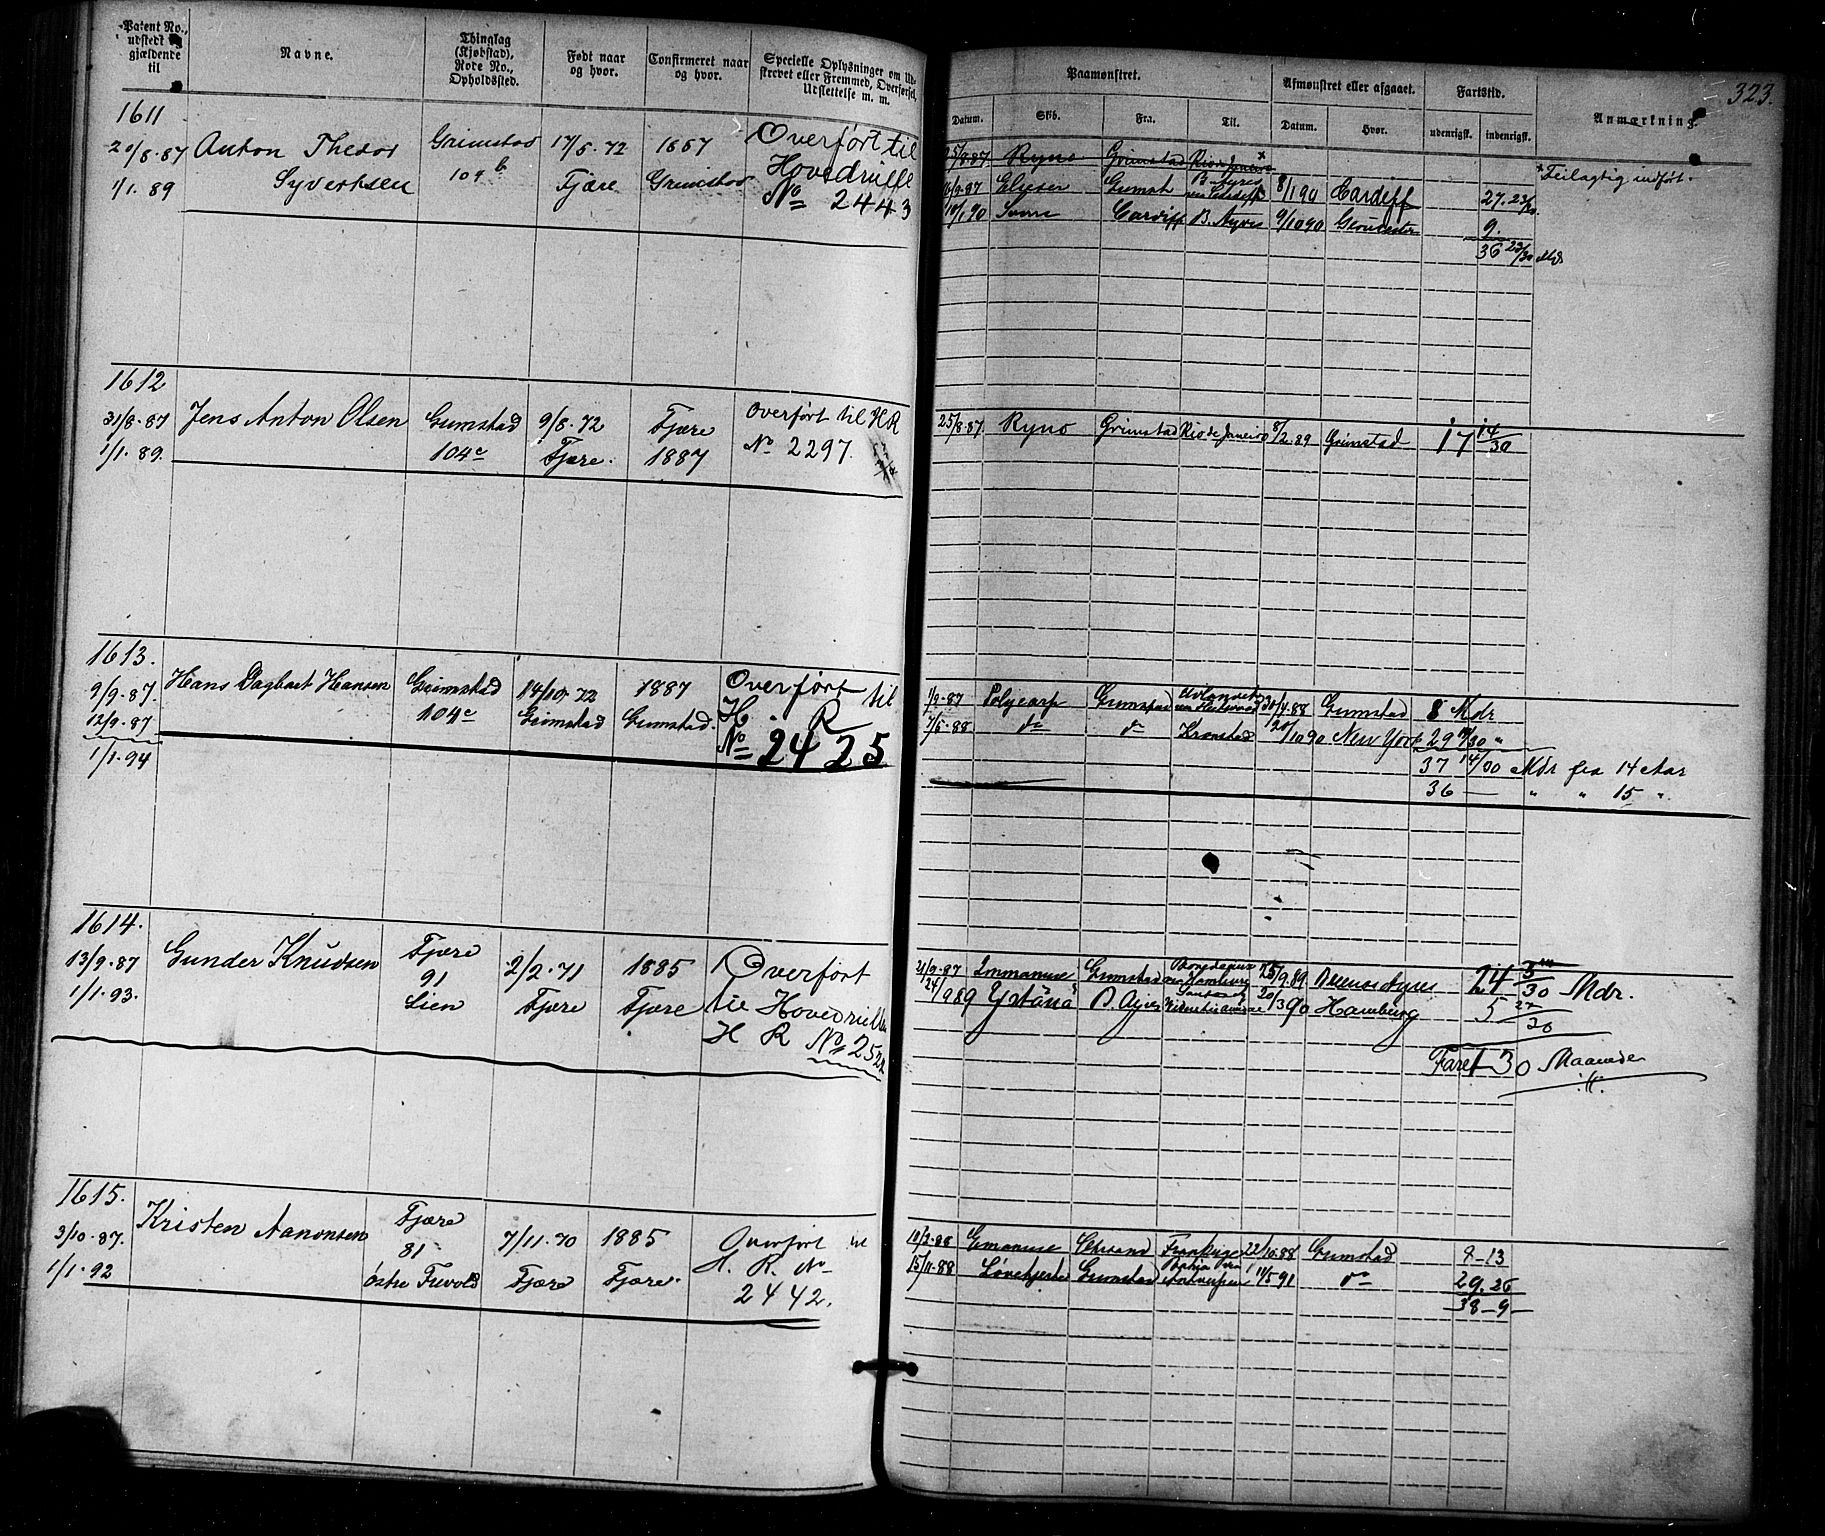 Patent No., udstedt og gjældende til
Navne.
Thinglag (Kjøbstad), Rode No., Opholdssted.
Født naar og hvor.
Confirmeret naar og hvor.
Specielle Oplysninger om Udskrevet eller Fremmed, Overførsel, Udslettelse m. m.
Paamønstret.
Afmønstret eller afgaaet.
Fartstid.
Anmærkning.
323.
Datum.
Skb.
Fra.
Til.
Datum.
Hvor.
udenrigsk.
indenrigsk.
1611
20/8.87 Anton Thedor Grimstad 17/5.72 1887 Overført til
1/1.89 Syvertsen 104 b Fjære Grimstad Hovedrulle
No 2443
25/8.87 Ryno Grimstad Rio de Janeiro x
x Feilagtig indført.
/9.87 Elieser Grmst B. Ayres
via Cardiff 8/1 90 Cardiff 27. 23/30
10/1 90 Samme Cardiff B. Ayres 9/10 90 Gloucester 9.
36 23/30 Md
1612
31/8.87 Jens Anton Olsen Grimstad 9/8.72 Fjære Overført til HR
1/1.89. 104c Fjære. 1887 No 2297.
25/8.87. Ryno Grimstad Rio de Janeiro 8/2.89 Grimstad 17 14/30
1613.
9/9.87. Hans Dagbart Hansen Grimstad 14/10.72 1887 Overført til
12/9.87 104c Grimstad Grimstad. H. R
1/1.94 No 2425
1/9.87 Polycarp Grimstad 30/4.88 Grimstad 8 Mdr
7/5.88 do do Kronstad 20/10 90 New York 29 14/30 "
37 14/30 Mdr fra 14 Aar
36 — " " 15 "
1614.
13/9.87 Gunder Knudsen Fjære 2/2.71 1885 Overført
1/1.93. 91 Fjære Fjære til Hovedrullen
Lien H R No 252
21/9.87 Immanuel Grimstad Bordeaux
via Hamburg 25/9.89 Buenos Ayres 24 5/30 Mdr.
24/9 89 Ystäná B. Ayres 20/3 90 Hamburg 5 27/30
Faret 30 Maaneder
1615.
3/10.87. Kristen Aanonsen Fjære 7/11.70 1885 Overført til
1/1.92 81 Fjære Fjære. H. R. No
østre Frevold 2442.
10/2.88 Emanuel Chrsand 22/10.88 Grimstad 8-13
15/11.88 Løvehjerte Grimstad Antwerpen 11/5 91 do 29.26
38-9-